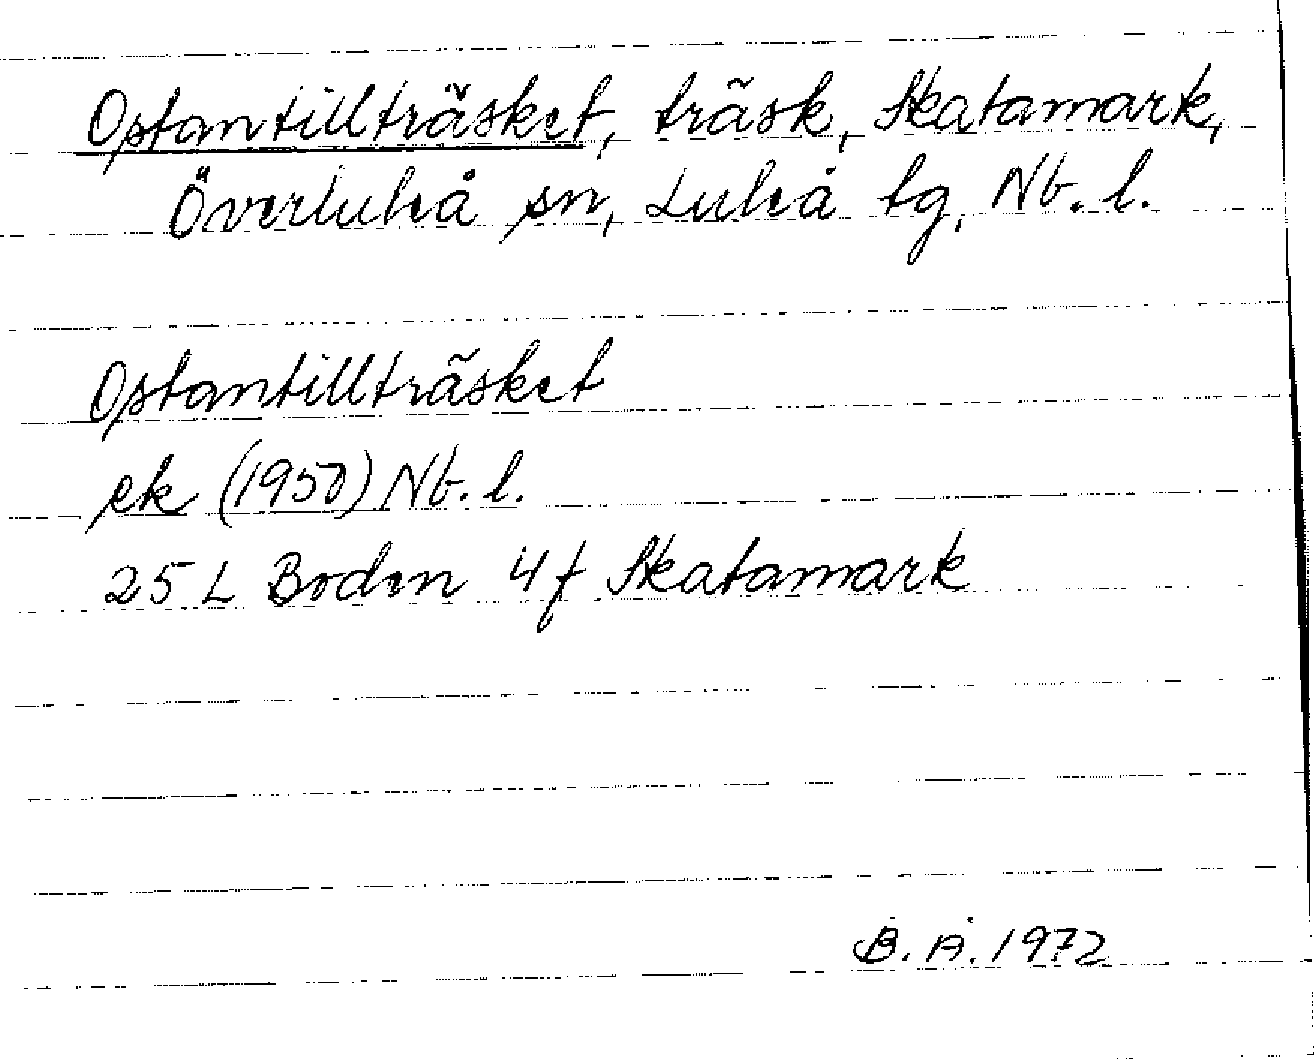 Ostantillträsket, träsk, Skatamark,
Överluleå sn, Luleå tg, Nb. l.
Ostantillträsket
ek (1950) Nb. l.
25 L Boden 4f Skatamark
B. Å. 1972